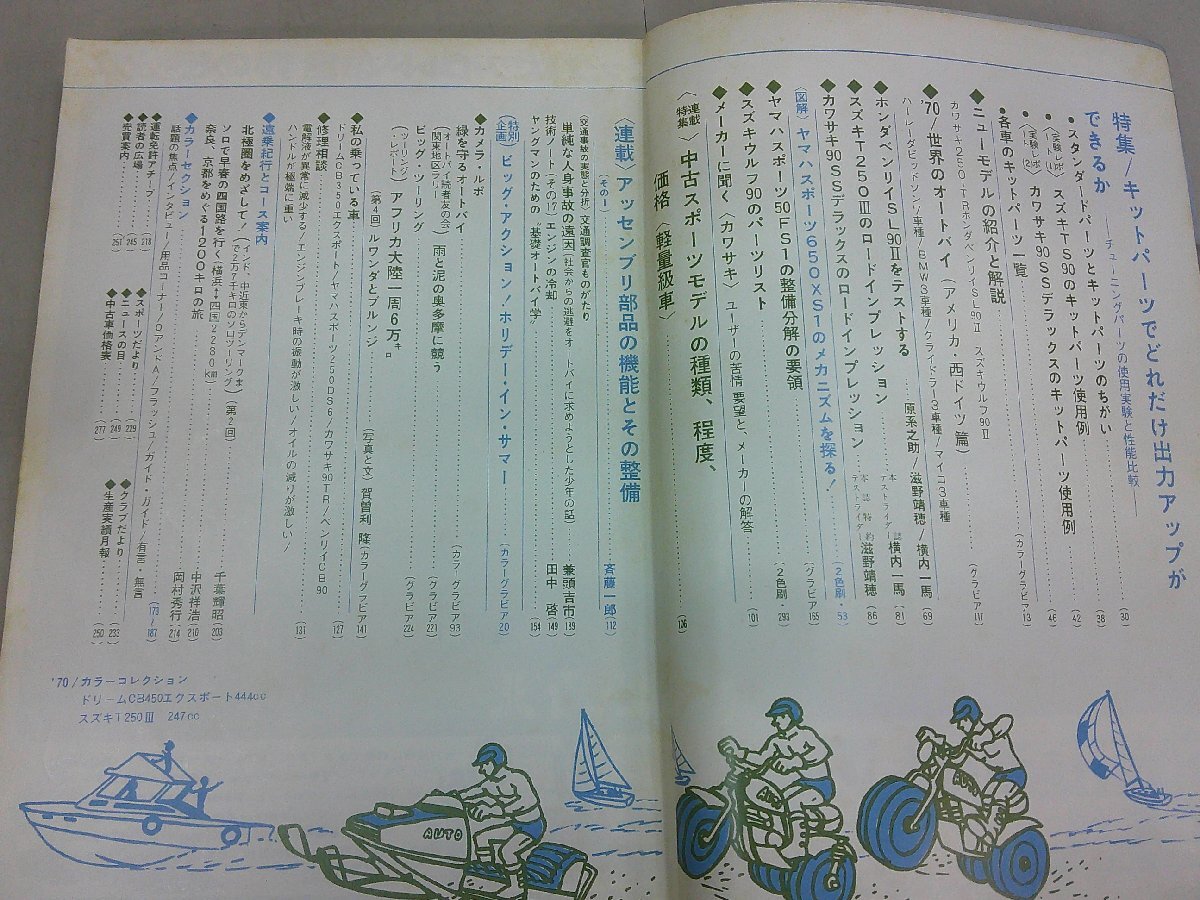 特集/キットパーツでどれだけ出力アップが
できるか
―チューニングパーツの使用実験と性能比較―
30
・スタンダードパーツとキットパーツのちがい 38
・〈実験レポ(1)〉スズキTS90のキットパーツ使用例 42
・〈実験レポ(2)〉カワサキ90SSデラックスのキットパーツ使用例 46
・各車のキットパーツ一覧 (カラーグラビア) 13
◆ニューモデルの紹介と解説 (グラビア)
カワサキ250・TRホンダベンリイSL90Ⅱ スズキウルフ90Ⅱ
◆'70/世界のオートバイ〈アメリカ・西ドイツ篇〉
ハーレーダビッドソン/車種/BMW3車種/クライドラー3車種/マイコ3車種
原系之助/滋野靖穂/横内一馬 69
◆ホンダベンリイSL90Ⅱをテストする 本誌テストライダー 横内一馬 81
◆スズキT250Ⅲのロードインプレッション
◆カワサキ90SSデラックスのロードインプレッション 本誌特約テストライダー 滋野靖穂 86
〈図解〉ヤマハスポーツ650XS1のメカニズムを探る! (2色刷・53)
◆ヤマハスポーツ50FS1の整備分解の要領 (グラビア) 165
◆スズキウルフ90のパーツリスト (2色刷・293)
◆メーカーに聞く〈カワサキ〉ユーザーの苦情 要望と、メーカーの解答 101
〈連載特集〉中古スポーツモデルの種類、程度、
価格〈軽量級車〉 106
〈連載〉アッセンブリ部品の機能とその整備
(その1) 斉藤一郎 112
〈交通事故の実態と分析〉交通調査官ものがたり
単純な人身事故の遠因(社会からの逃避をオートバイに求めようとした少年の話) 兼頭吉市 139
技術ノート(その17)エンジンの冷却 田中 啓 149
ヤングマンのための 基礎オートバイ学 154
〈特別企画〉ビッグ・アクション!ホリデー・イン・サマー (カラーグラビア) 20
◆カメラ・ルポ
緑を守るオートバイ (カラーグラビア) 93
(オートバイ読者友の会関東地区ラリー) 雨と泥の奥多摩に競う (グラビア) 221
ビッグ・ツーリング (グラビア) 224
(ツーリングレポート) アフリカ大陸一周6万㌔
(第4回)ルワンダとブルンジ (写真と文) 賀曽利 隆(カラーグラビア) 141
◆私の乗っている車
ドリームCB350エクスポート/ヤマハスポーツ250DS6/カワサキ90TR/ベンリイCB90 127
◆修理相談
電解液が異常に減少する/エンジンブレーキ時の振動が激しい/オイルの減りが激しい/
ハンドルが極端に重い 131
◆遠乗紀行とコース案内
北極圏をめざして!(インド、中近東からデンマークまで2万7千キロのソロツーリング)(第2回) 千葉輝昭 203
ソロで早春の四国路を行く(横浜↔四国2280㎞) 中沢祥浩 210
奈良、京都をめぐる1200キロの旅 岡村秀行 214
◆カラーセクション
話題の焦点/インタビュー/用品コーナー/QアンドA/フラッシュ/ガイド・ガイド/有言・無言 (173〜187)
◆運転免許アチーブ 218
◆読者の広場 245
◆売買案内 251
◆スポーツだより 229
◆ニュースの目 249
◆中古車価格表 277
◆クラブだより 233
◆生産実績月報 250
'70/カラーコレクション
ドリームCB450エクスポート444cc
スズキT250Ⅲ 247cc
AUTO
AUTO
AUTO